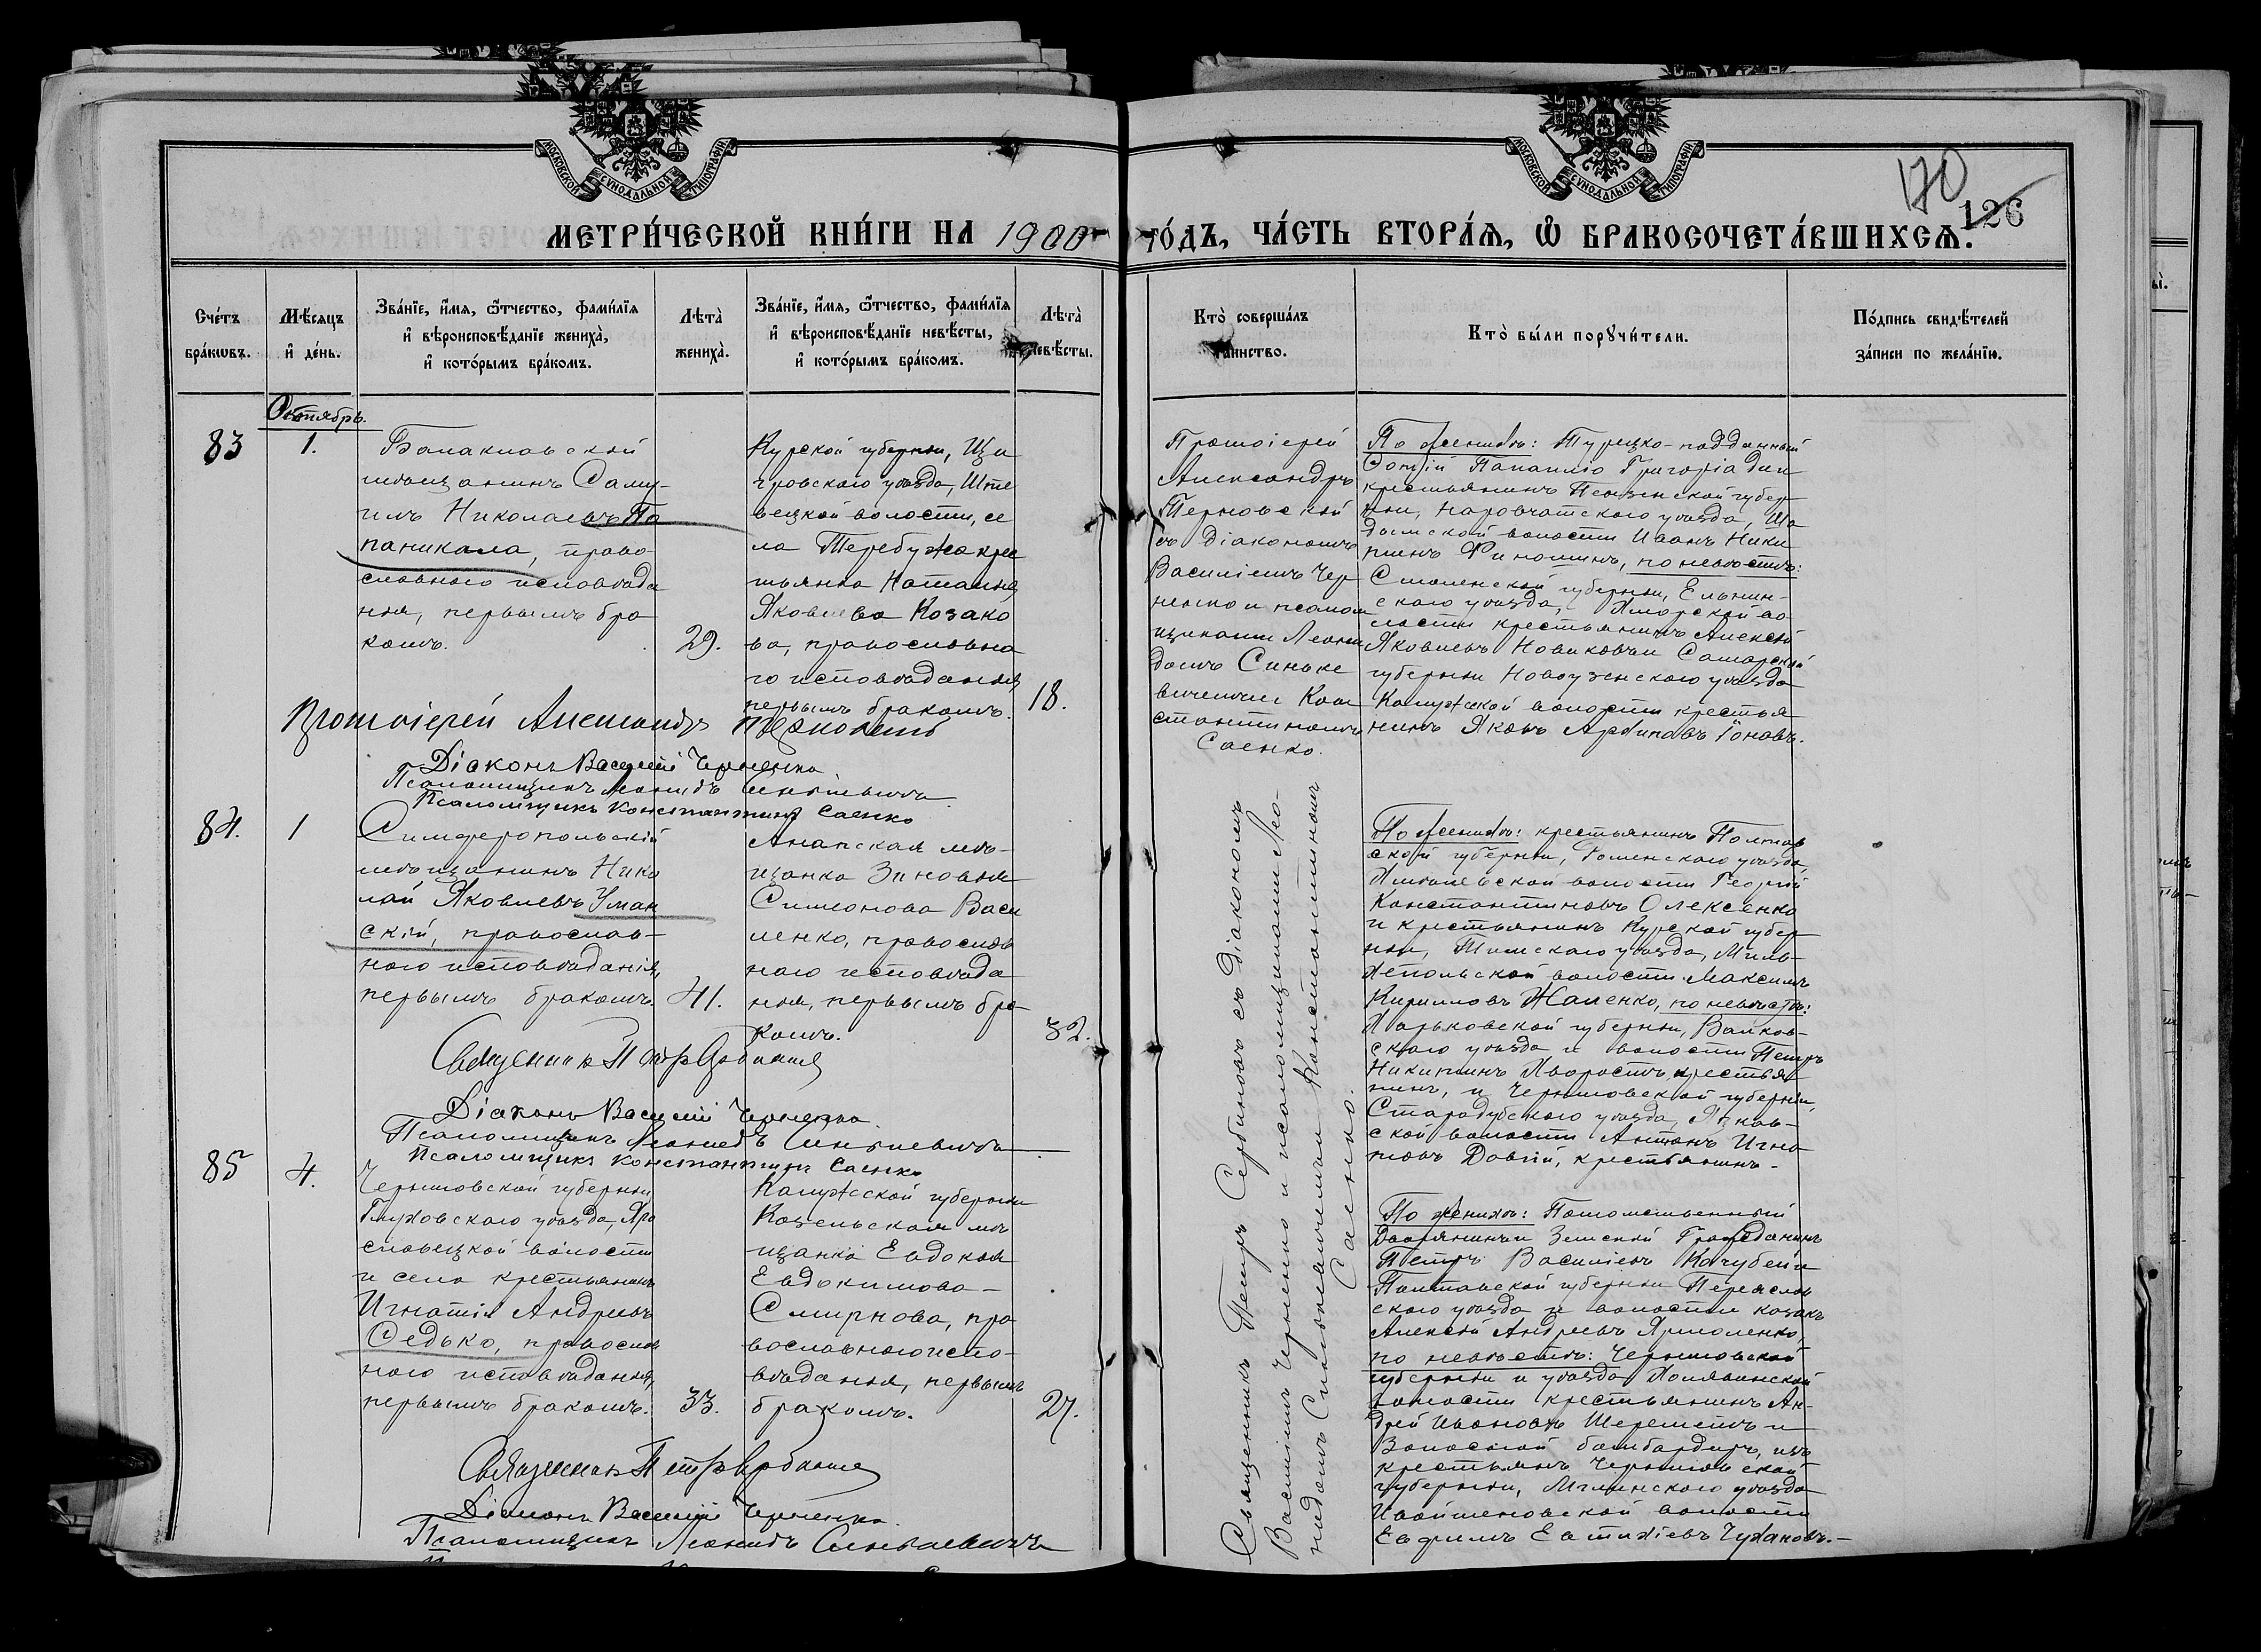 МЕТРИ́ЧЕСКОЙ КНИ́ГИ НА 1900 ГО́ДЪ, ЧА́СТЬ ВТОРА́Ѧ, Ѡ БРАКОСОЧЕТА́ВШИХСѦ.
МОСКОВСКОЙ СУНОДАЛЬНОЙ ТИПОГРАФІИ
МОСКОВСКОЙ СУНОДАЛЬНОЙ ТИПОГРАФІИ
170
126
Сче́тъ
бра́кѡвъ.
Мѣ́сяцъ
и҆ де́нь.
Зва́нїе, и҆́мя, ѻ҆́тчество, фами́лїя
и҆ вѣроисповѣ́данїе жениха̀,
и҆ кото́рымъ бра́комъ.
Лѣта̀
жениха̀.
Зва́нїе, и҆́мя, ѻ҆́тчество, фами́лїя
и҆ вѣроисповѣ́данїе невѣ́сты,
и҆ кото́рымъ бра́комъ.
Лѣта̀
невѣ́сты.
Кто̀ соверша́лъ
таинство.
Кто̀ бы́ли порꙋчи́тели.
По́дпись свидѣ́телей
за́писи по жела́нїю.
Октябрь.
83
1.
Балаклавскій
мѣщанинъ Саму-
илъ Николаевъ Па
паникала, право-
славнаго исповѣда
нія, первымъ бра
комъ.
29.
Курской губерніи, Щи
гровскаго уѣзда,
вецкой волости, се
ла Теребужа крес
тьянка Наталія
Яковлева Козако
ва, православна
го исповѣданія,
первымъ бракомъ.
18.
Протоіерей
Александръ
Терновскій
съ діакономъ
Василіемъ Чер
ненко и псалом
щиками Леони
домъ Синьке
вичемъ и Кон
стантиномъ
Саенко.
По женихѣ: Турецко-подданный
Григоріади и
крестьянинъ Пензенской губер
ніи, Наровчатскаго уѣзда,
волости Иванъ Ники
тинъ по невѣстѣ:
Смоленской губерніи, Ельнин-
скаго уѣзда, во
лости крестьянинъ Алексѣй
Яковлевъ Новиковъ и Самарской
губерніи Новоузенскаго уѣзда
волости крестья
нинъ Яковъ Архиповъ Іоновъ.
Протоіерей Александръ Терновскій
Діаконъ Василій Черненко
Псаломщикъ Леонидъ Синькевичъ
Псаломщикъ Константинъ Саенко
84.
1
Симферопольскій
мѣщанинъ Нико
лай Яковлевъ Уман
скій, православ-
наго исповѣданія,
первымъ бракомъ.
41.
Анапская мѣ-
щанка Зиновія
Симеонова Васи
ленко, православ
наго исповѣда
нія, первымъ бра-
комъ.
32.
Священникъ Петръ Сербиновъ съ діакономъ
Василіемъ Черненко и псаломщиками Лео-
нидомъ Синькевичемъ и Константиномъ
Саенко.
По женихѣ: крестьянинъ Полтав
ской губерніи, Роменскаго уѣзда,
волости Георгій
Константиновъ Олексенко
и крестьянинъ Курской губер
ніи, Тимскаго уѣзда,
волости Максимъ
Кирилловъ Жаленко, по невѣстѣ:
Харьковской губерніи, Валков-
скаго уѣзда и волости Петръ
Никитинъ Хворостъ, крестья
нинъ, и Черниговской губерніи,
Стародубскаго уѣзда,
ской волости Антонъ Игна
товъ Довгій, крестьянинъ.-
Священникъ Петръ
Діаконъ Василій Черненко.
Псаломщикъ Леонидъ Синькевичъ
Псаломщикъ Константинъ Саенко
85
4.
Черниговской губерніи
Глуховскаго уѣзда, Яро
славецкой волости
и села крестьянинъ
Игнатій Андреевъ
Седько, православ
наго исповѣданія,
первымъ бракомъ.
33.
Калужской губерніи
Козельская мѣ
щанка Евдокія
Евдокимова-
Смирнова, пра
вославнаго испо-
вѣданія, первымъ
бракомъ.
27.
По женихѣ: Потомственный
Дворянинъ Земской Гражданинъ
Петръ Василіевъ Кочубей и
Полтавской губерніи Переяслав
скаго уѣзда и волости козакъ
Алексѣй Андреевъ Ярмоленко,
по невѣстѣ: Черниговской
губерніи и уѣзда
волости крестьянинъ Ан-
дрей Ивановъ Шереметъ и
Запасной бомбардиръ, изъ
крестьянъ Черниговской
губерніи, Мглинскаго уѣзда
волости
Евфимъ Евтихіевъ Чухановъ.-
Священникъ Петръ
Діаконъ Василій Черненко.
Псаломщикъ Леонидъ Синькевичъ